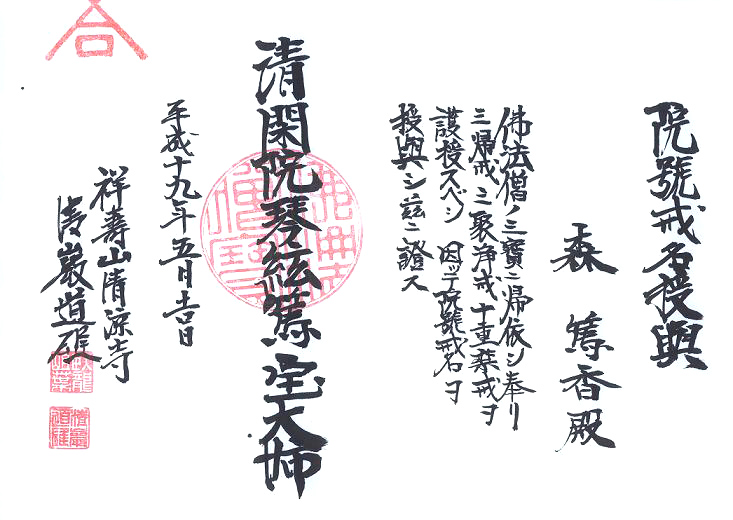 院號戒名授與
森 篤香殿
佛法僧ノ三寶ニ帰依シ奉リ
三帰戒 三聚浄戒 十重禁戒ヲ
護授スベシ 因ッテ院號戒名ヲ
授與シ茲ニ證ス
清閑院琴絃篤宝大姉
平成十九年五月吉日
祥壽山清凉寺
巖道雄
合